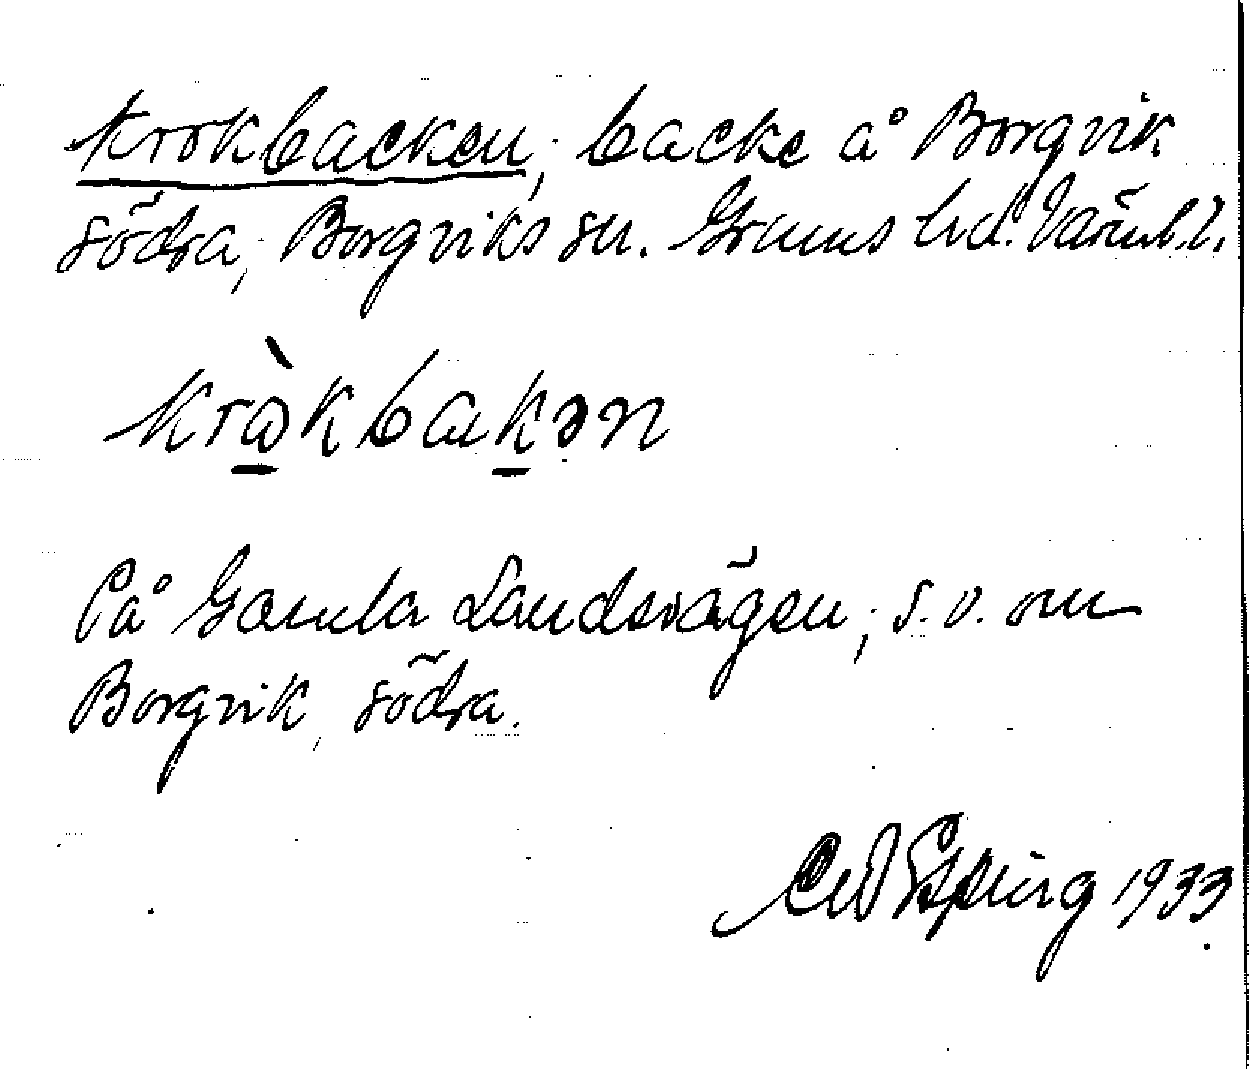 Krokbacken, backe å Borgvik
södra, Borgviks sn. Grums hd. Värml.l.
kròkbakən
På Gamla Landsvägen, s.v. om
Borgvik, södra.
1933